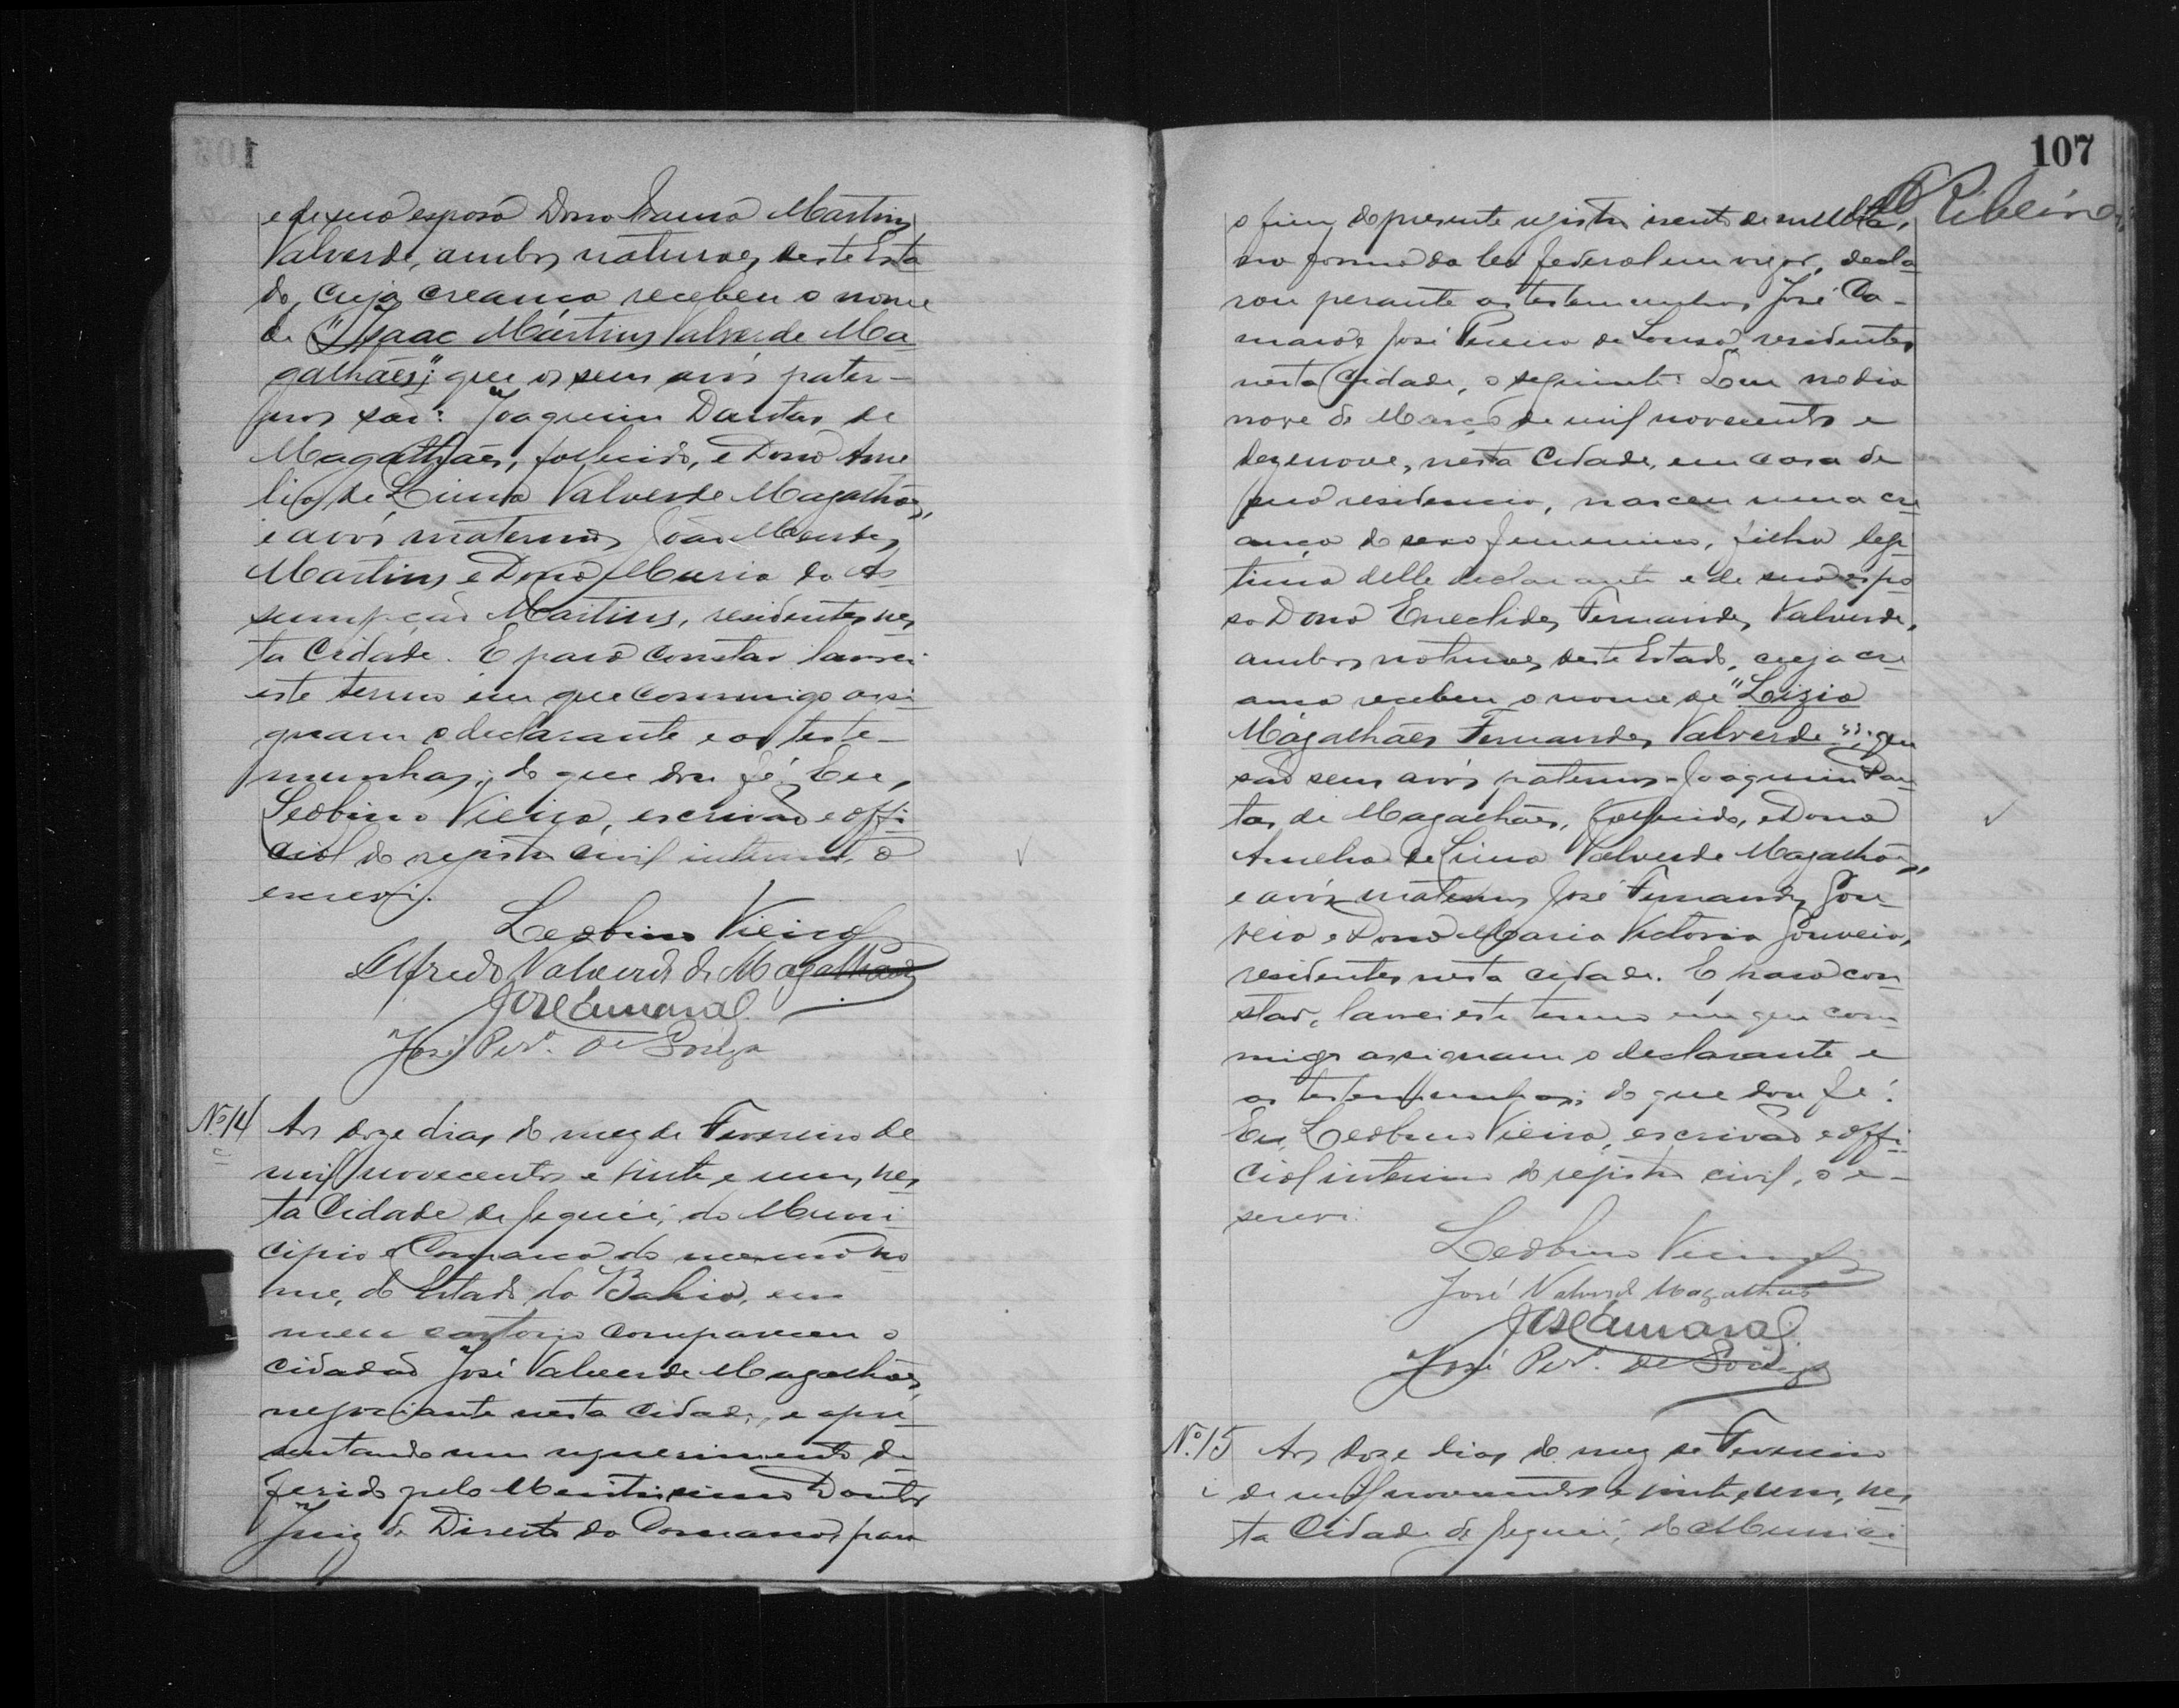 e de sua esposa Dona Laura Martins
Valverde, ambos naturaes deste Esta
do, cuja creança recebeu o nome
de "Isaac Martins Valverde Ma
galhães"; que os seus avós pater-
nos são: Joaquim Dantas de
Magalhães, fallecido, e Dona Ame
lia de Lima Valverde Magalhães,
e avós maternos João Mendes
Martins e Dona Maria da As
sumpção Martins, residentes nes
ta Cidade. E para constar lavrei
este termo em que commigo assi
gnam o declarante e as teste-
munhas; do que dou fé. Eu,
Leobino Vieira, escrivão e offi
cial do registro civil interino, o
escrevi.
Leobino Vieira
Alfredo Valverde de Magalhães
José Amaral
José Perª. de Souza
Nº 14 Aos doze dias do mez de Fevereiro de
mil novecentos e vinte e um, nes
ta Cidade de Jequié, do Muni
cipio e Comarca do mesmo no
me, do Estado da Bahia, em
meu cartorio compareceu o
cidadão José Valverde Magalhães,
negociante nesta Cidade, e apre
sentando um requerimento de
ferido pelo Meritissimo Doutor
Juiz de Direito da Comarca, para
107
Ribeiro
o fim do presente registro isento de multa,
na forma da lei federal em vigor, decla
rou perante as testemunhas José
Amaral e José Pereira de Souza, residentes
nesta Cidade, o seguinte: Que no dia
nove de Março de mil novecentos e
dezenove, nesta Cidade, em casa de
sua residencia, nasceu uma cre
ança do sexo femenino, filha legi
tima delle declarante e de sua espo
sa Dona Eneclides Fernandes Valverde,
ambos naturaes deste Estado, cuja cre
ança recebeu o nome de "Leizia
Magalhães Fernandes Valverde"; que
são seus avós paternos Joaquim Dan
tas de Magalhães, fallecido, e Dona
Amelia de Lima Valverde Magalhães,
e avós maternos José Fernandes Gou
veia e Dona Maria Victoria Gouveia,
residentes nesta cidade. E para con
star, lavrei este termo em que com
migo assignam o declarante e
as testemunhas; do que dou fé.
Eu, Leobino Vieira, escrivão e offi
cial interino do registro civil, o e-
screvi.
Leobino Vieira
José Valverde Magalhães
José Amaral
José Perª. de Souza
Nº. 15 Aos doze dias do mez de Fevereiro
de mil novecentos e vinte e um, nes
ta Cidade de Jequié, do Munici